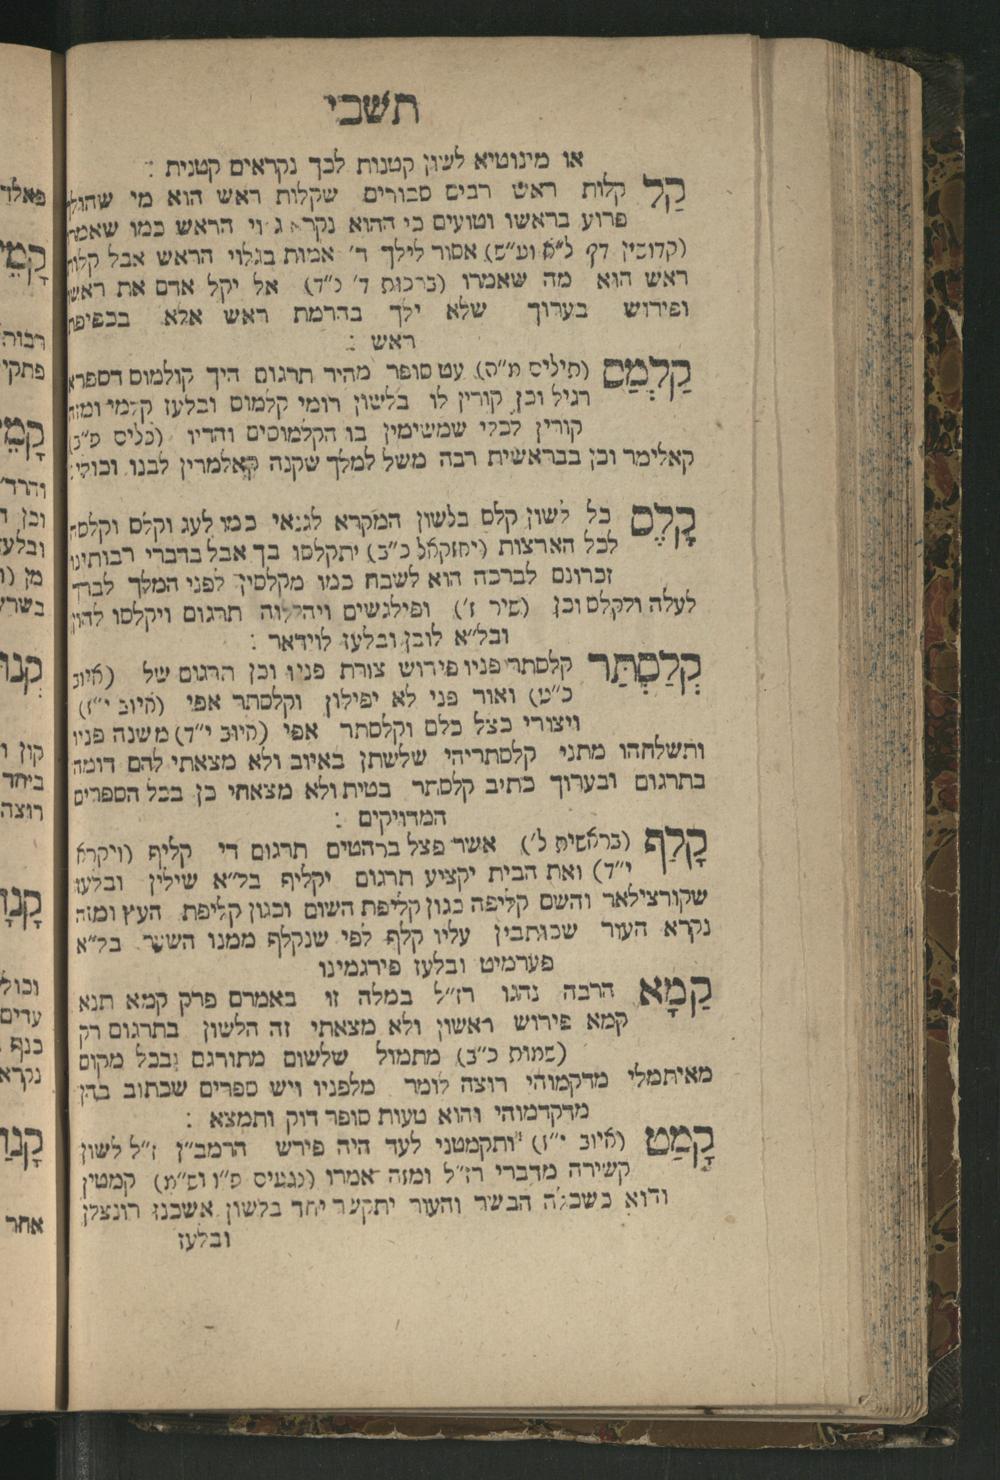 תשבי
או מינוטיא לשון קטנות לכך נקראים קטנית :
קַל קלות ראש רבים סבורים שקלות ראש הוא מי שהולך
פרוע בראשו וטועים כי ההוא נקרא גלוי הראש כמו שאמרו
(קדושין דף ל״א וע״ש) אסור לילך ד׳ אמות בגלוי הראש אבל קלות
ראש הוא מה שאמרו (ברכות ד׳ כ״ד) אל יקל אדם את ראשו
ופירוש בערוך שלא ילך בהרמת ראש אלא בכפיפת
ראש :
קַלְמַס (תילים מ״ה) עט סופר מהיר תרגום היך קולמוס דספרא
רגיל וכן קורין לו בלשון רומי קלמוס ובלעז קלמי ומזה
קורין לכלי שמשימין בו הקלמוסים והדיו (כלים פ״ב)
קאלימר וכן בבראשית רבה משל למלך שקנה קאלמרין לבנו וכולי :
קָלַס כל לשון קלס בלשון המקרא לגנאי כמו לעג וקלס וקלסה
לכל הארצות (יחזקאל כ״ב) יתקלסו בך אבל בדברי רבותינו
זכרונם לברכה הוא לשבח כמו מקלסין לפני המלך לברך
לעלה ולקלס וכן (שיר ז׳) ופילגשים ויהללוה תרגום ויקלסו להון
ובל״א לובן ובלעז לוידאר :
קְלַסְתַּר קלסתר פניו פירוש צורת פניו וכן תרגום של (איוב
כ״ט) ואור פני לא יפילון וקלסתר אפי (איוב י״ז)
ויצורי כצל כלם וקלסתר אפי (איוב י״ד) משנה פניו
ותשלחהו מתני קלסתריהי שלשתן באיוב ולא מצאתי להם דומה
בתרגום ובערוך כתיב קלסתר בטית ולא מצאתי כן בכל הספרים
המדויקים :
קָלַף (בראשית ל׳) אשר פצל ברהטים תרגום די קליף (ויקרא
י״ד) ואת הבית יקציע תרגום יקליף בל״א שילין ובלעז
שקורצילאר והשם קליפה כגון קליפת השום וכגון קליפת העץ ומזה
נקרא העור שכותבין עליו קלף לפי שנקלף ממנו השער בל״א
פערמיט ובלעז פירגמינו
קַמָא הרבה נהגו רז״ל במלה זו באמרם פרק קמא תנא
קמא פירוש ראשון ולא מצאתי זה הלשון בתרגום רק
(שמות כ״ב) מתמול שלשום מתורגם ובכל מקום
מאיתמלי מדקמוהי רוצה לומר מלפניו ויש ספרים שכתוב בהן
מדקדמוהי והוא טעות סופר דוק ותמצא :
קָמַט (איוב י״ו) ותקמטני לעד היה פירש הרמב״ן ז״ל לשון
קשירה מדברי רז״ל ומזה אמרו (נגעים פ״ו וש״מ) קמטין
והוא כשכלה הבשר והעור יתקער יחד בלשון אשכנז רונצלן
ובלעז